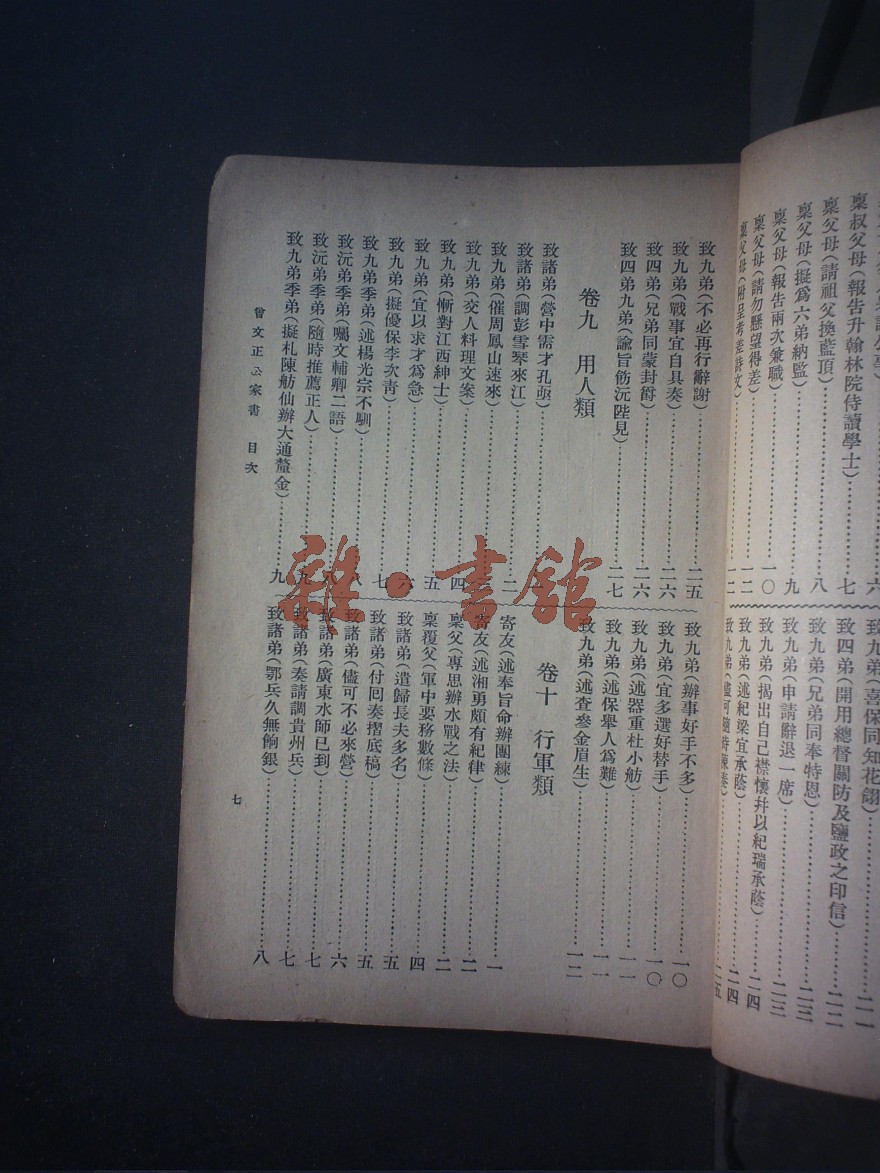 稟叔父母(報告升翰林院侍讀學士)……七
稟父母(請祖父換藍頂)……八
稟父母(擬爲六弟納監)……九
稟父母(報告兩次兼職)……一〇
稟父母(請勿懸望得差)……一二
稟父母(附呈考差詩文)……一二
致九弟(喜保同知花翎)……二一
致四弟(開用總督關防及鹽政之印信)……二二
致九弟(兄弟同奉特恩)……二三
致九弟(申請辭退一席)……二三
致九弟(揭出自己襟懷幷以紀瑞承蔭)……二四
致九弟(述紀梁宜承蔭)……二四
致九弟(儘可隨時陳奏)……二五
致九弟(不必再行辭謝)……二五
致九弟(戰事宜自具奏)……二六
致四弟(兄弟同蒙封爵)……二六
致四弟九弟(諭旨飭沅陛見)……二七
卷九 用人類
致諸弟(營中需才孔亟)……
致諸弟(調彭雪琴來江)……二
致九弟(催周鳳山速來)……
致九弟(交人料理文案)……四
致九弟(慚對江西紳士)……五
致九弟(宜以求才爲急)……六
致九弟(擬優保李次青)……七
致九弟季弟(述楊光宗不馴)……八
致沅弟季弟(囑文輔卿二語)……八
致沅弟季弟(隨時推薦正人)……九
致九弟季弟(擬札陳舫仙辦大通釐金)……九
致九弟(辦事好手不多)……一〇
致九弟(宜多選好替手)……一〇
致九弟(述器重杜小舫)……一一
致九弟(述保舉人爲難)……一一
致九弟(述查參金眉生)……一二
卷十 行軍類
寄友(述奉旨命辦團練)……一
寄友(述湘勇頗有紀律)……二
稟父(專思辦水戰之法)……二
稟覆父(軍中要務數條)……四
致諸弟(遣歸長夫多名)……五
致諸弟(付囘奏摺底稿)……五
致諸弟(儘可不必來營)……六
致諸弟(廣東水師已到)……七
致諸弟(奏請調貴州兵)……七
致諸弟(鄂兵久無餉銀)……八
曾文正公家書 目次
七
雜·書館